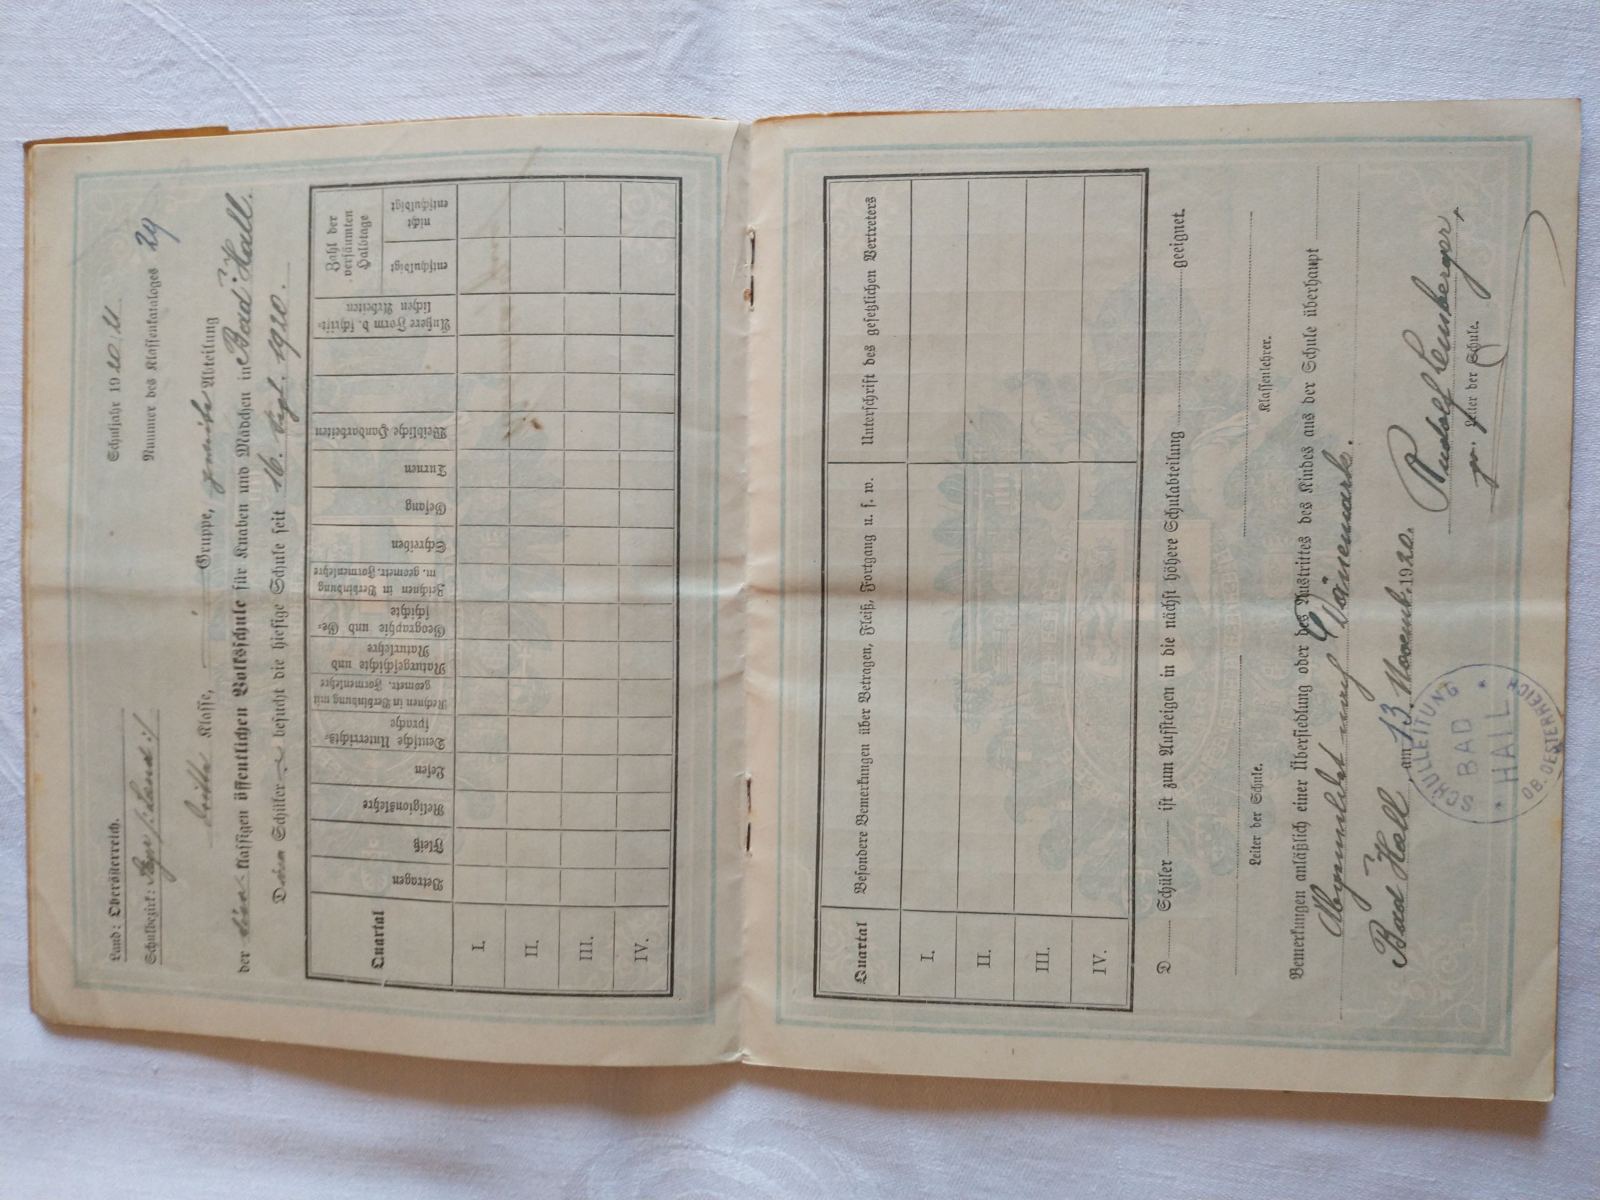 Land: Oberösterreich.
Schuljahr 1920/21
Schulbezirk: Steyr /: Land :/
Nummer des Klassenkataloges 24
dritte Klasse, — Gruppe, zweite Abteilung
der klassigen öffentlichen Volksschule für Knaben und Mädchen in Bad Hall.
Schüler besucht die hiesige Schule seit 16. Sept. 1920.
Quartal
Betragen
Fleiß
Religionslehre
Lesen
Deutsche Unterrichts-
sprache
Rechnen in Verbindung mit
geometr. Formenlehre
Naturgeschichte und
Naturlehre
Geographie und Ge-
schichte
Zeichnen in Verbindung
m. geometr. Formenlehre
Schreiben
Gesang
Turnen
Weibliche Handarbeiten
Äußere Form d. schrift-
lichen Arbeiten
Zahl der
versäumten
Halbtage
entschuldigt
nicht
entschuldigt
I.
II.
III.
IV.
Quartal
Besondere Bemerkungen über Betragen, Fleiß, Fortgang u. s. w.
Unterschrift des gesetzlichen Vertreters
I.
II.
III.
IV.
D Schüler ist zum Aufsteigen in die nächst höhere Schulabteilung geeignet.
Leiter der Schule.
Klassenlehrer.
Bemerkungen anläßlich einer Übersiedlung oder des Austrittes des Kindes aus der Schule überhaupt
Abgemeldet nach Dänemark.
Bad Hall, am 13. Novemb. 1920.
Rudolf
Leiter der Schule.
SCHULLEITUNG
BAD
HALL
OB. OESTERREICH